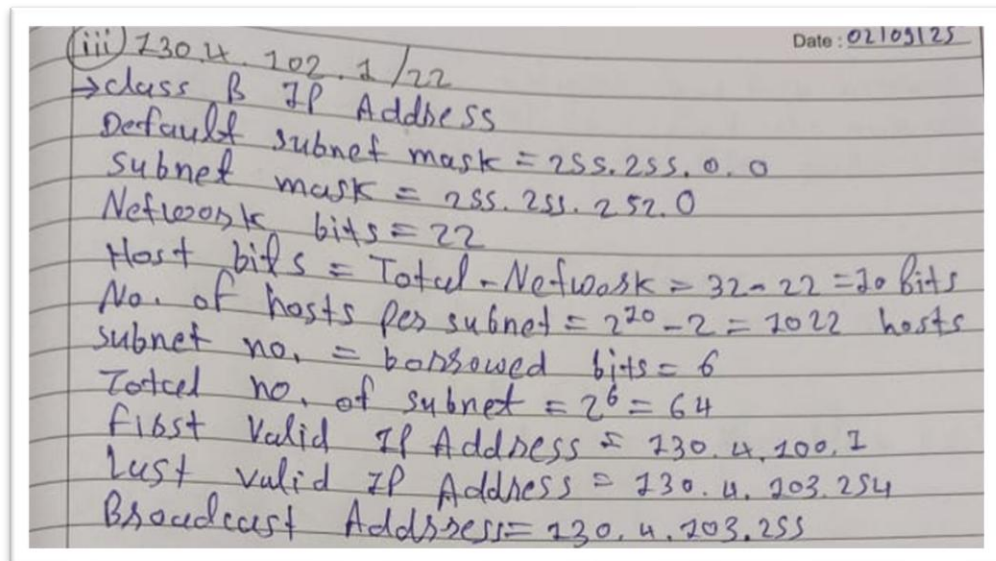 Date : 02/09/25
(iii) 130.4.102.1/22
→ class B IP Address
Default subnet mask = 255.255.0.0
Subnet mask = 255.255.252.0
Network bits = 22
Host bits = Total - Network = 32 - 22 = 10 bits
No. of hosts per subnet = 2^10 - 2 = 1022 hosts
subnet no. = borrowed bits = 6
Total no. of subnet = 2^6 = 64
First Valid IP Address = 130.4.100.1
Last Valid IP Address = 130.4.103.254
Broadcast Address = 130.4.103.255